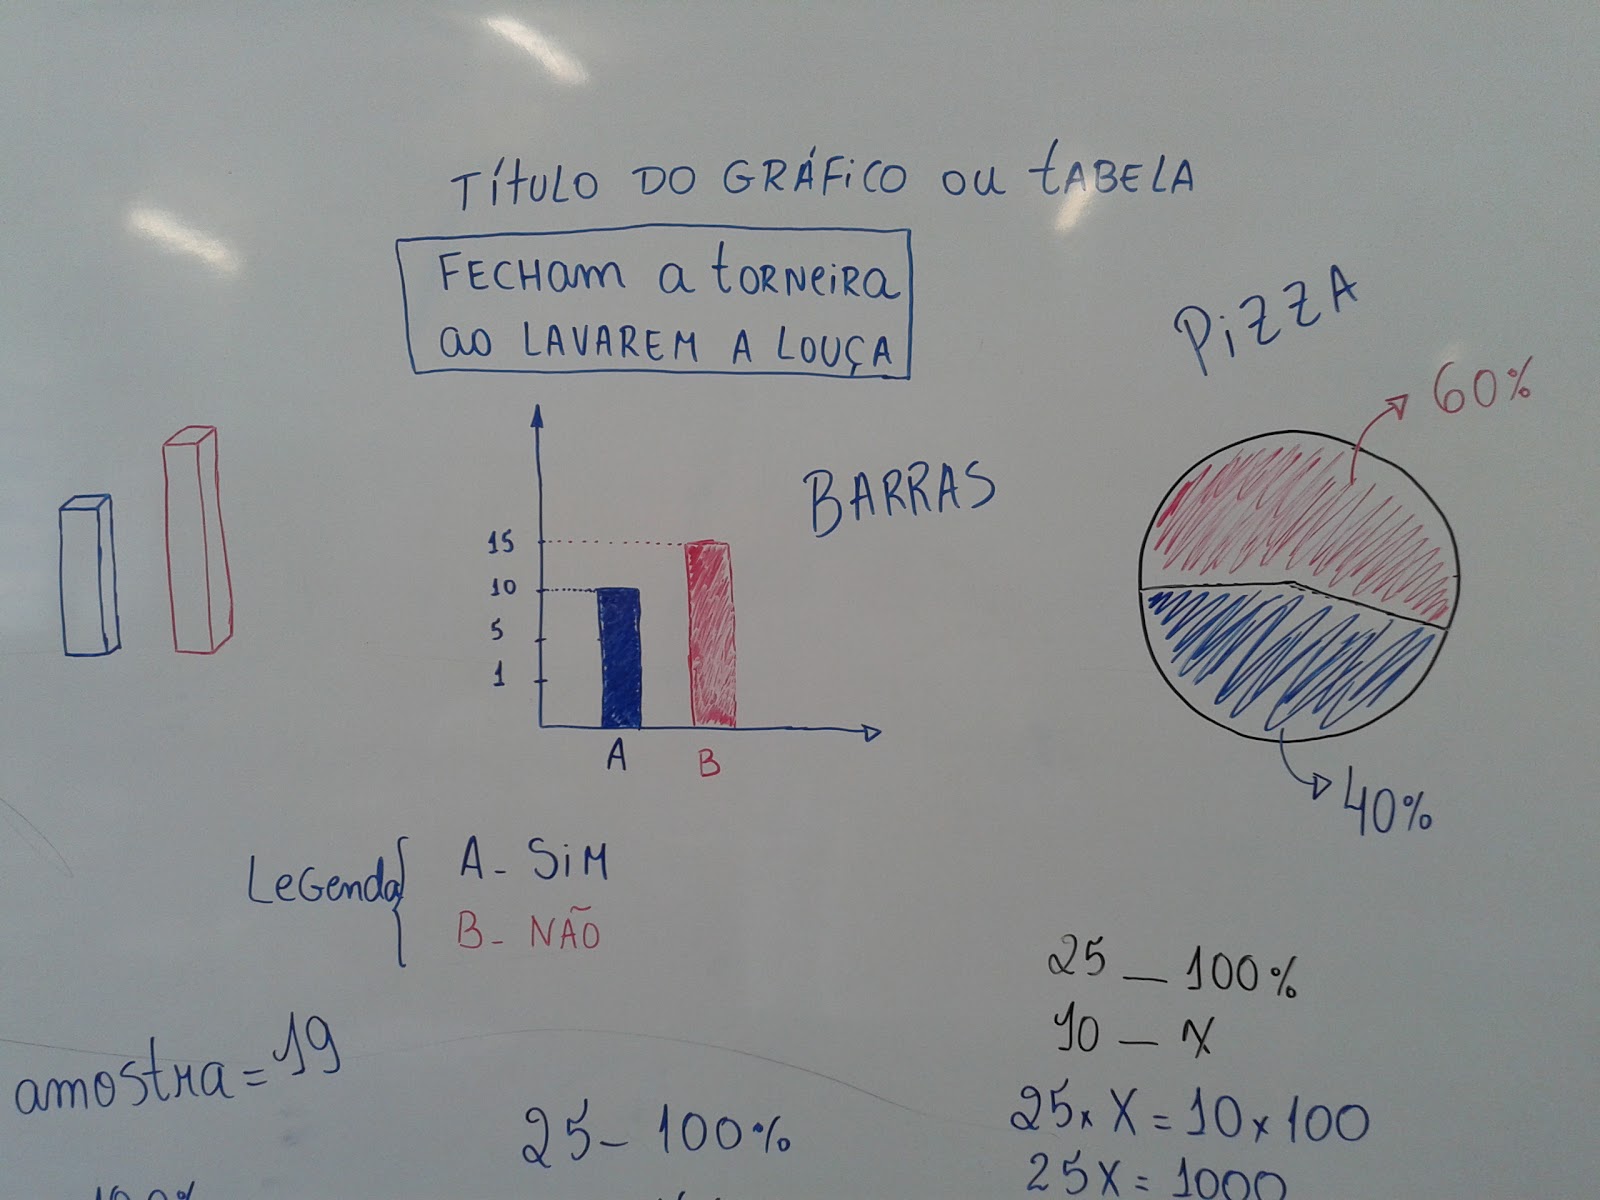 TÍTULO DO GRÁFICO OU TABELA
FECHAM A TORNEIRA
AO LAVAREM A LOUÇA
PIZZA
60%
BARRAS
15
10
5
1
A
B
40%
LEGENDA
A- SIM
B- NÃO
amostra = 19
25 - 100%
25 - 100%
10 - X
25 x X = 10 x 100
25X = 1000